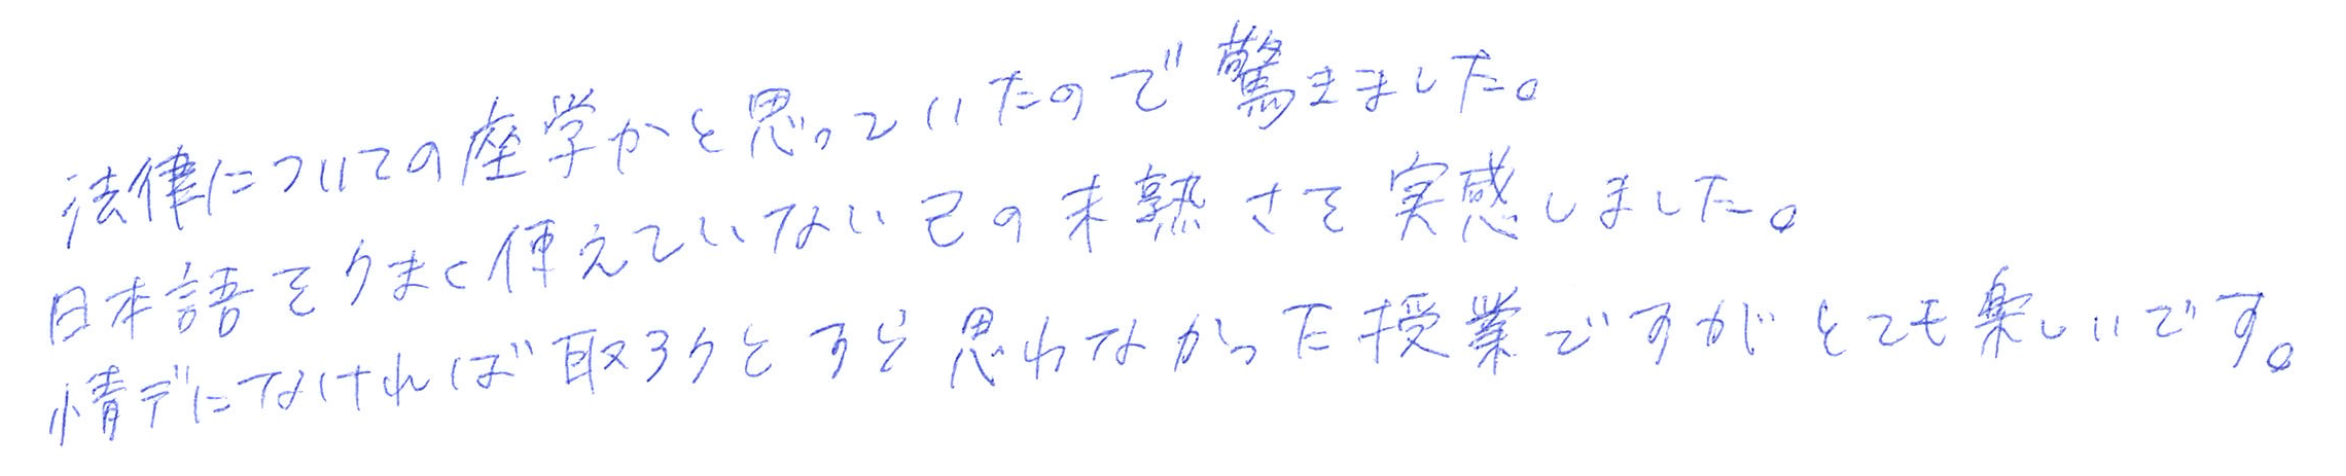 法律についての座学かと思っていたので驚きました。
日本語をうまく使えていない己の未熟さを実感しました。
情デになければ取ろうとすら思わなかった授業ですがとても楽しいです。